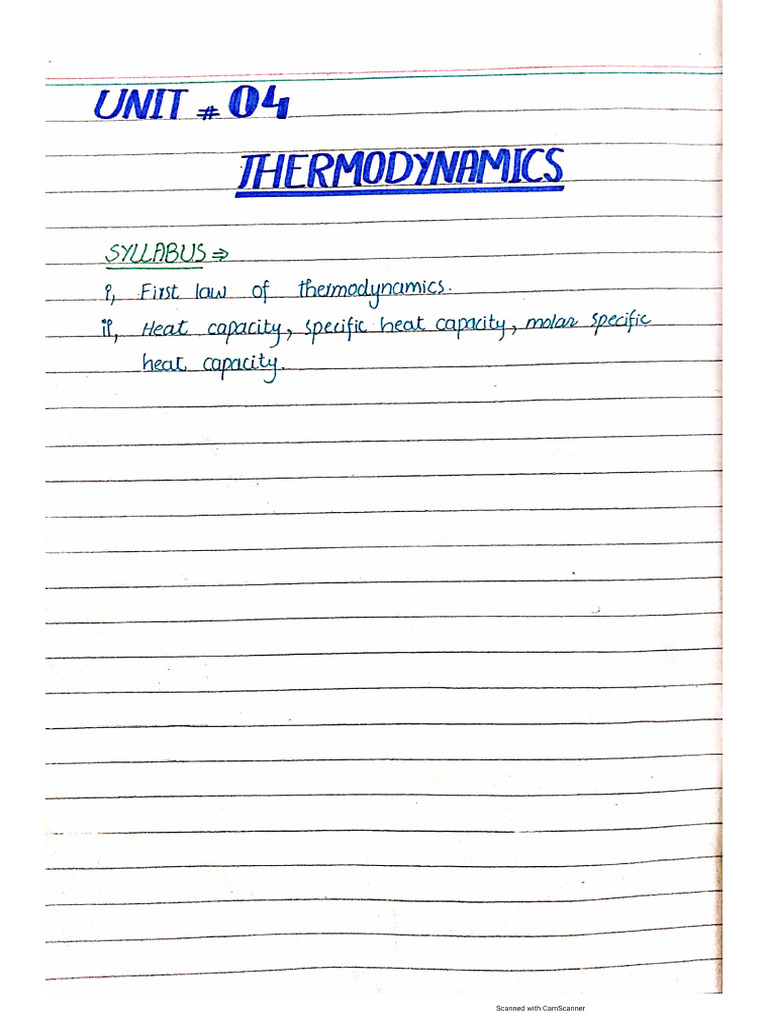 UNIT # 04
THERMODYNAMICS
SYLLABUS ⇒
i, First law of thermodynamics.
ii, Heat capacity, specific heat capacity, molar specific
heat capacity.
Scanned with CamScanner